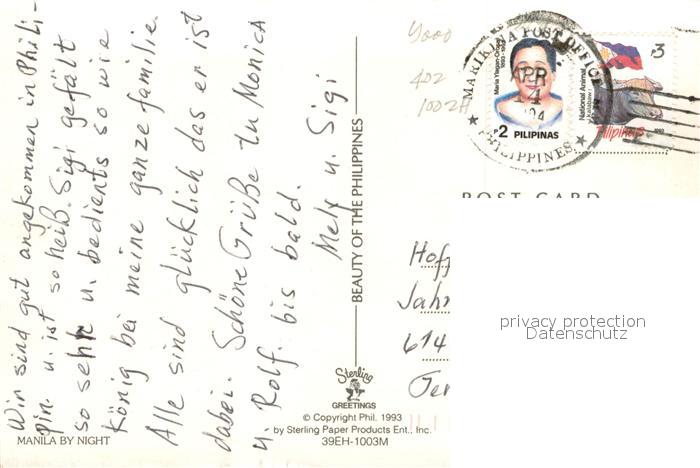 Win sind gut angekommen in Phili-
pin. u. ist so heiß. Sigi gefält
so sehr u. bedients so wie
König bei meine ganze familie.
Alle sind glücklich das er ist
dabei. Schöne Grüße tu Monica
u. Rolf. bis bald.
Mely u. Sigi
MANILA BY NIGHT
BEAUTY OF THE PHILIPPINES
Sterling
GREETINGS
© Copyright Phil. 1993
by Sterling Paper Products Ent., Inc.
39EH-1003M
4000
402
1002A
MARIKINA POST OFFICE
APR
4
'94
PHILIPPINES
Maria Ylagan Orosa
1893-1943
2 PILIPINAS
3
National Animal
Kalabaw
Pilipinas
1993
POST CARD
Hoff
Jahn
614
Ger
privacy protection
Datenschutz